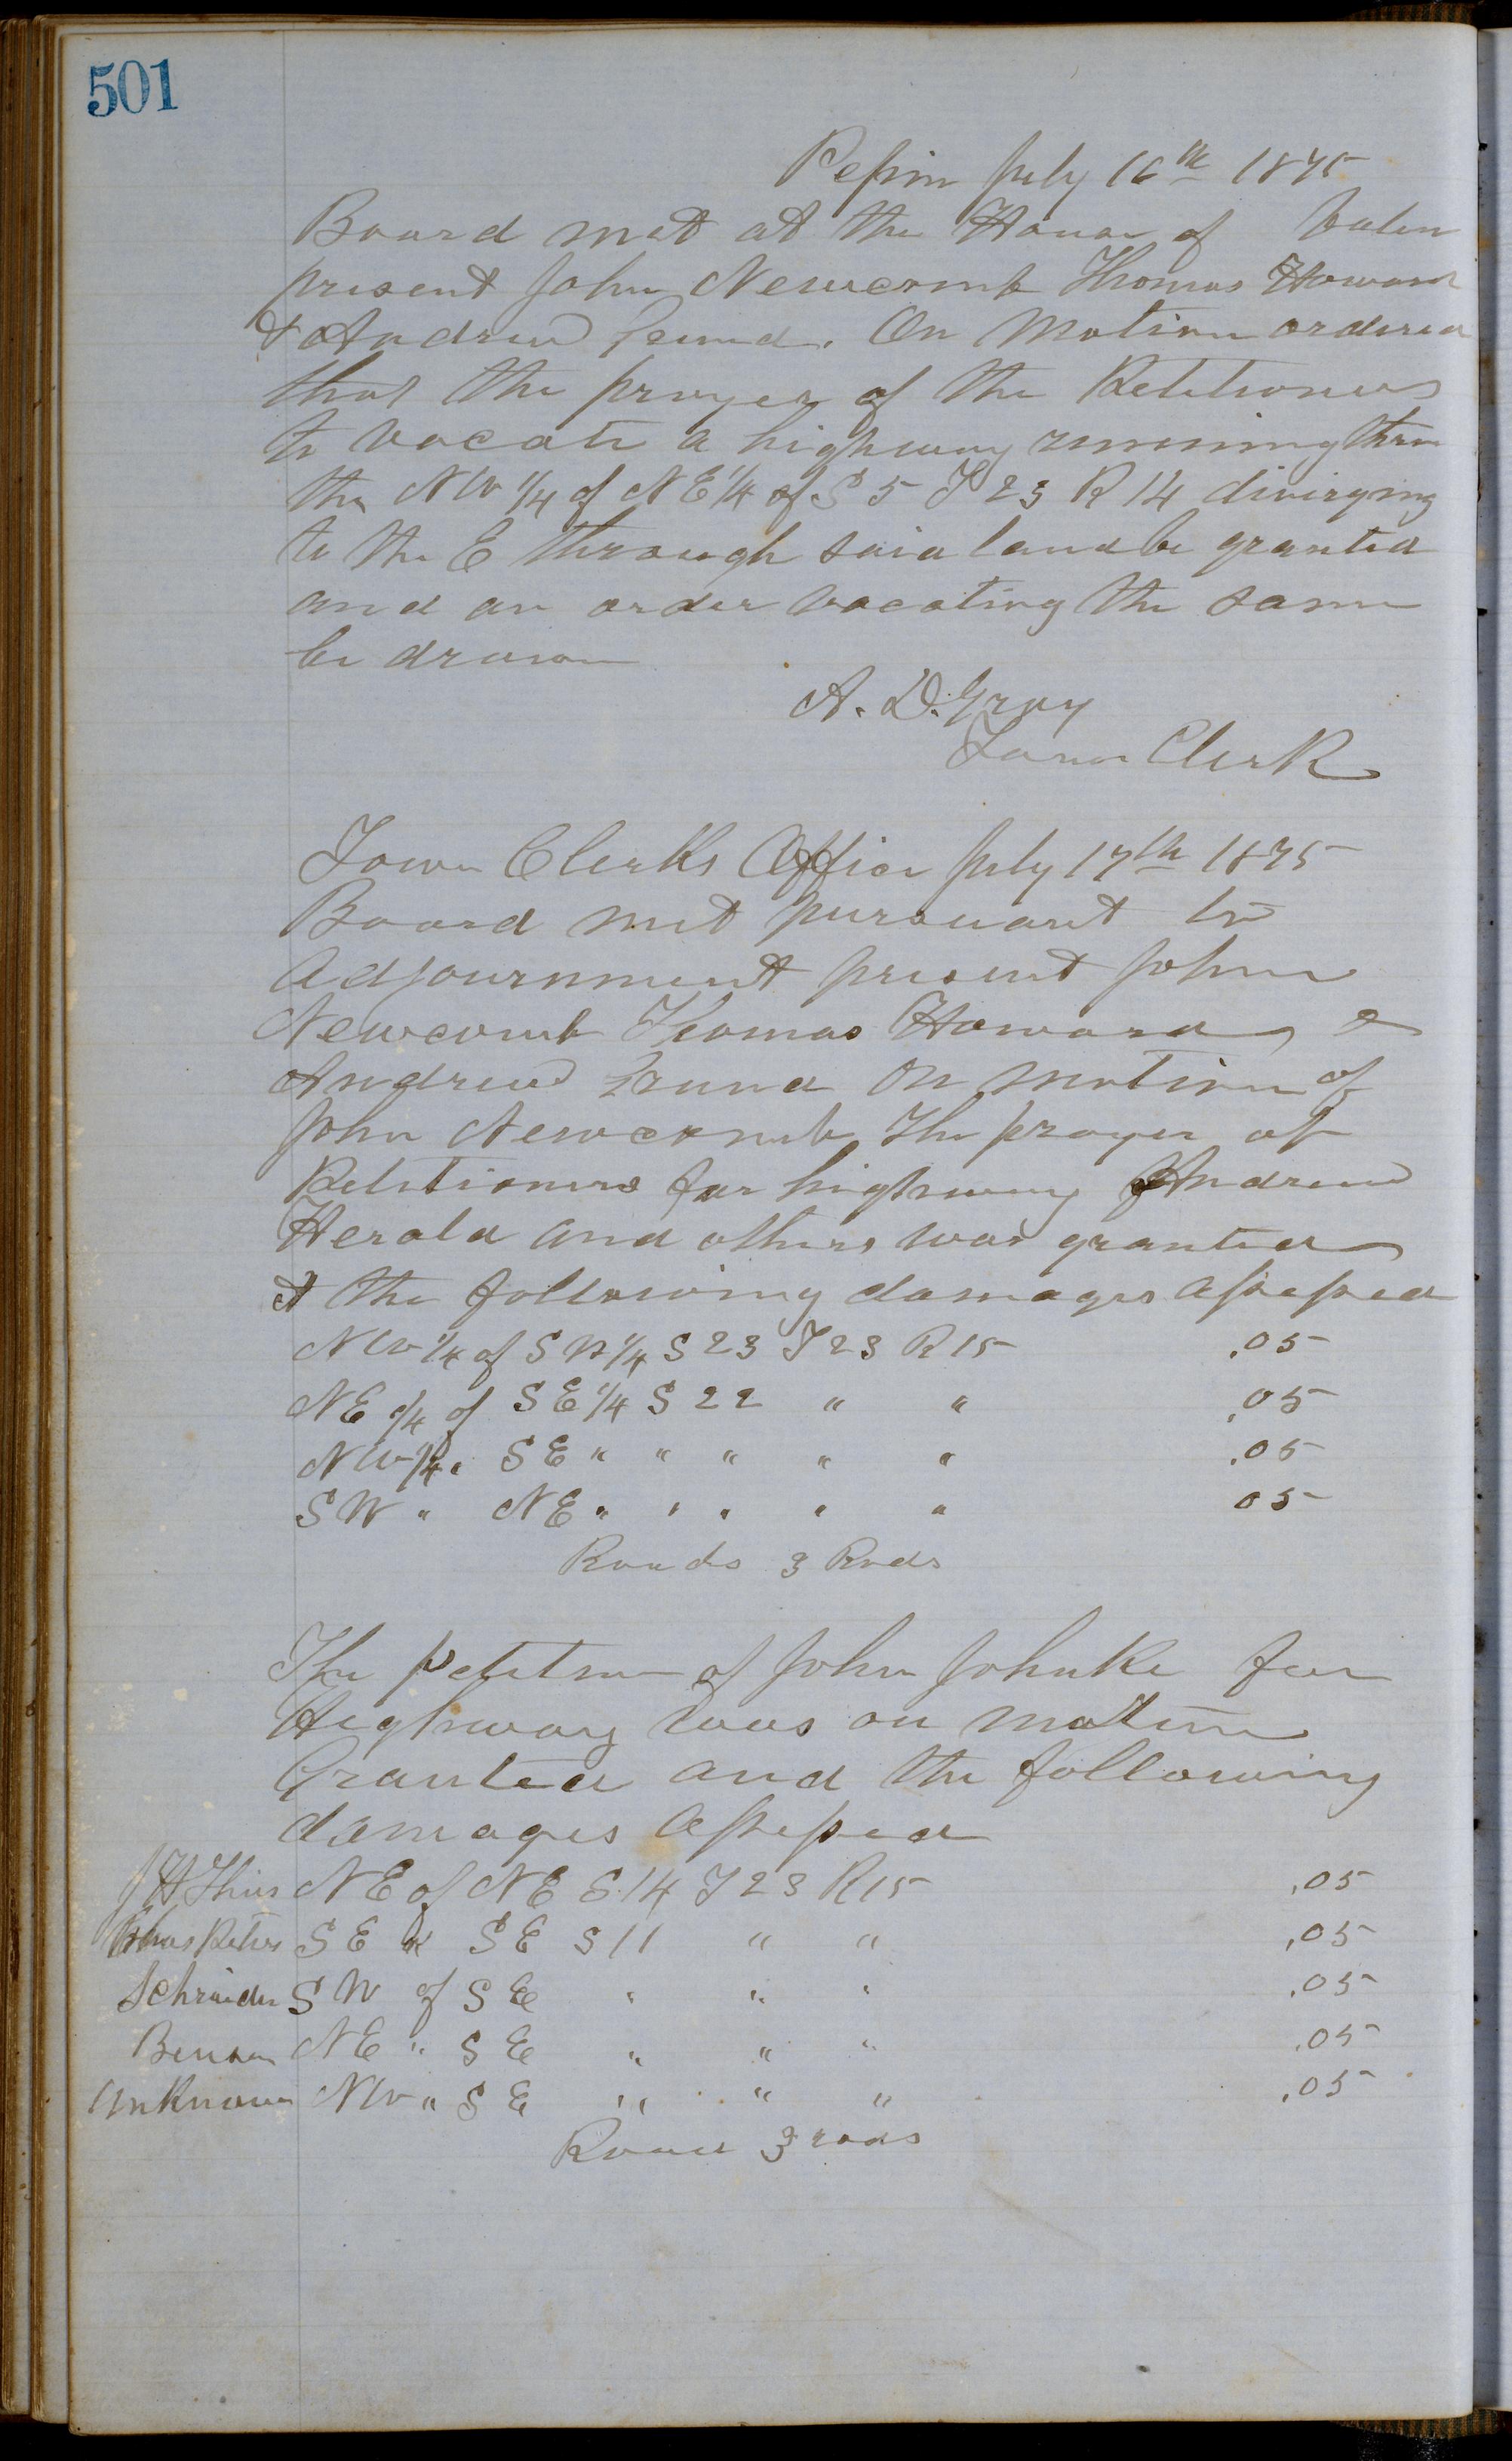 501
Pepin July 16th 1875
Board met at the House of
present John Newcomb Thomas Howard
& Andrew On Motion ordered
that the prayer of the Petitioners
to vacate a highway running thru
the NW 1/4 of NE 1/4 of S 5 T 23 R 14 diverging
to the E through said land be granted
and an order vacating the same
be drawn
A. D. Gray
Town Clerk
Town Clerks Office July 17th 1875
Board met pursuant to
adjournment present John
Newcomb Thomas Howard &
Andrew On motion of
John Newcomb The prayer of
Petitioners for highway Andrew
Herald and others was granted
& the following damages assessed
NW 1/4 of SW 1/4 S 23 T 23 R 15 .05
NE 1/4 of SE 1/4 S 22 " " .05
NW 1/4 " SE " " " " " .05
SW " NE " " " " " 05
Roads 3 Rods
The petition of John Johnke for
Highway was on motion
Granted and the following
damages assessed
J H Thies NE of NE S 14 T 23 R 15 .05
Peters SE " SE S 11 " " .05
Schrieder SW of SE " " " .05
Benson NE " SE " " " .05
Unknown NW " SE " " " .05
Road 3 rods